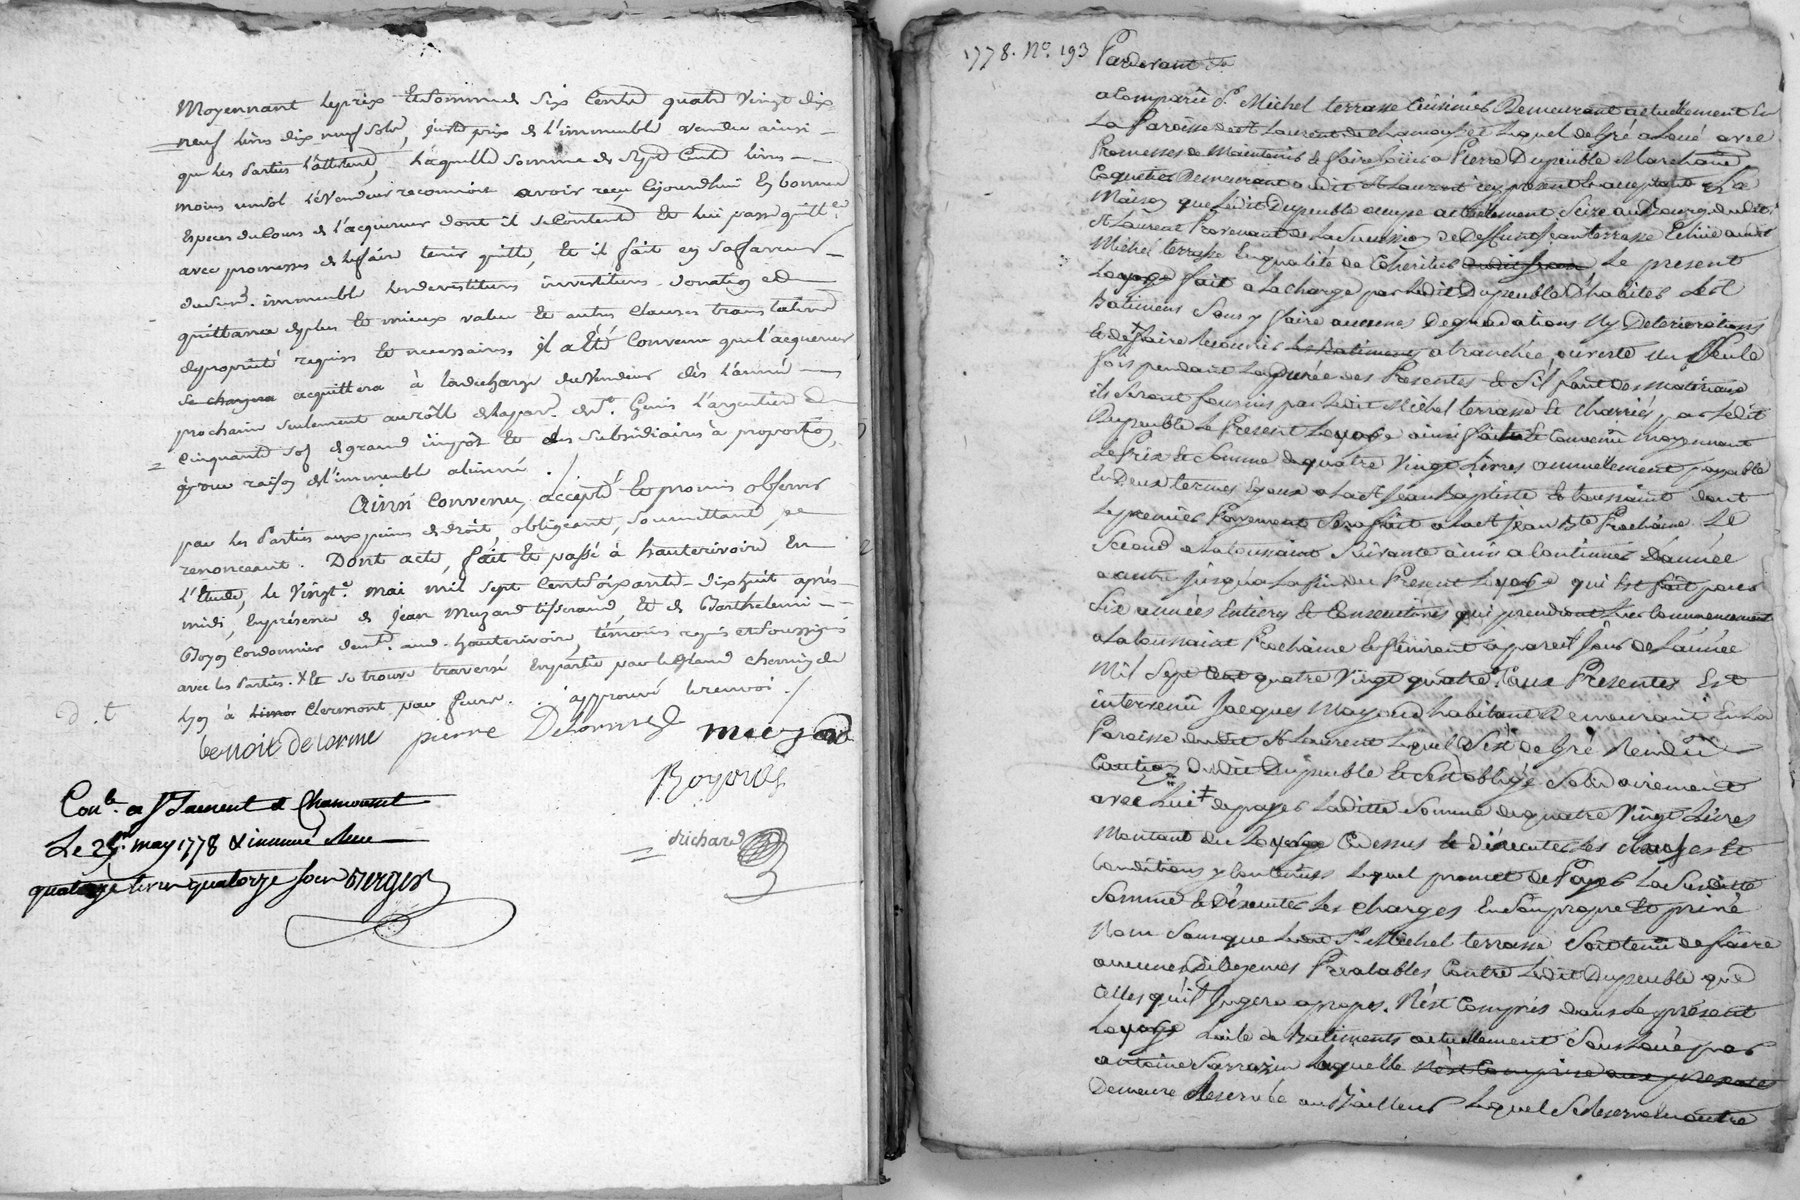 Moyennant le prix et somme de six cents quatre vingt dix
neuf livres dix neuf sols, juste prix de l'immeuble vendu ainsi
que les parties l'attestent, laquelle somme de sept cents livres
moins un sol le vendeur reconnoit avoir reçu cejourdhui en bonnes
especes du cours de l'acquereur dont il se contente et lui passe quittce
avec promesses de le faire tenir quitte, et il fait en sa faveur
dud. immeuble les devestitures investitures donation et
quittance de plus et mieux value et autres clauses translatives
de propriété requises et necessaires, il a été convenu que l'acquereur
se chargera acquittera à la decharge du vendeur dès l'année
prochaine seulement au rolle de la par. de St. Genis l'argentiere
cinquante sols de grand impôt et des subsidiaires à proportion,
pour raison de l'immeuble aliéné ./
Ainsi convenu, accepté et promis observer
par les parties aux peines de droit, obligeant, soumettant,
renonceant. Dont acte, fait et passé à hauterivoire en
l'étude, le vingt mai mil sept cent soixante-dix huit après
midi, en présence de Jean Muzard tisserand, et de Barthelemi
Boyon cordonnier demt. aud. hauterivoire, témoins requis et soussignés
avec les parties. x et se trouve traversé en partie par le grand chemin de
lyon à clermont par feurs. approuvé le renvoi ./
d. t
benoit delorme pierre Delorme muzard
Boyon
Conlé a St Laurent de Chamousset
Le 25 may 1778
quatorze livres quatorze sous
drichard
1778. No. 193 Pardevant &a
a Comparû Sr. Michel terrasse Cuisinier Demeurant actuellement en
La Paroisse de St Laurent de chamousset Lequel de Gré a Loué avec
Promesses de Maintenir et faire jouir a Pierre Dupeuble Marchand
Coquetier Demeurant audit St Laurent icy present et acceptant La
Maison que Ledit Dupeuble occupe actuellement Scize au Bourg dudit
St Laurent Provenant de La Succession de Deffunt Jean terrasse Echüe audit
Michel terrasse En qualité de Cohéritier Le present
Loyage fait a La charge par Ledit Dupeuble D'habiter Les
Batimens Sans y faire aucunes Degradations Ny Deteriorations
Et de faire Recouvrir les Batiments a tranchée ouverte une Seule
fois pendant La Durée des Presentes et S'il faut des materiaux
ils Seront fournis par Ledit Michel terrasse Et charriés par Ledit
Dupeuble Le Present Loyage ainsi fait Et Convenû moyennant
Le Prix et Somme de quatre Vingt Livres annuellement payable
En Deux termes Egaux a La St Jean Baptiste Et toussaint dont
Le premier Payement Sera fait a La St Jean Bte Prochaine Le
Second a La toussaint Suivante ainsi a Continuer D'année
a autre jusqu'a La fin du Present Loyage qui Est fait pour
Six années Entieres Et Consecutives qui prendront Leur Commencement
a La toussaint Prochaine Et finiront a pareil Jour de L'année
Mil Sept Cent quatre Vingt quatre. aux Presentes Est
intervenû Jacques Mayoud habitant Demeurant En La
Paroisse dudit St Laurent Lequel S'est de Gré Rendû
Caution Dudit Dupeuble Et S'est obligé Solidairement
avec Lui ‡ de payer Laditte Somme de quatre Vingt Livres
Montant du Loyage Cy Dessus et d'éxecuter Les charges Et
Conditions y Contenues Lequel promet de Payer La Susditte
Somme Et D'éxecuter Les charges En Son propre Et privé
Nom Sans que Ledit Sr. Michel terrasse Soit tenû de faire
aucunes Diligences Prealables Contre Ledit Dupeuble que
Celles qu'il Jugera a propos. N'est Compris dans Le présent
Loyage L'aile de Batiments actuellement Sous Louée par
antoine Sarrazin Laquelle n'est Comprise aux presentes
Demeure Reservée au Bailleur Lequel Se Reserve En outre